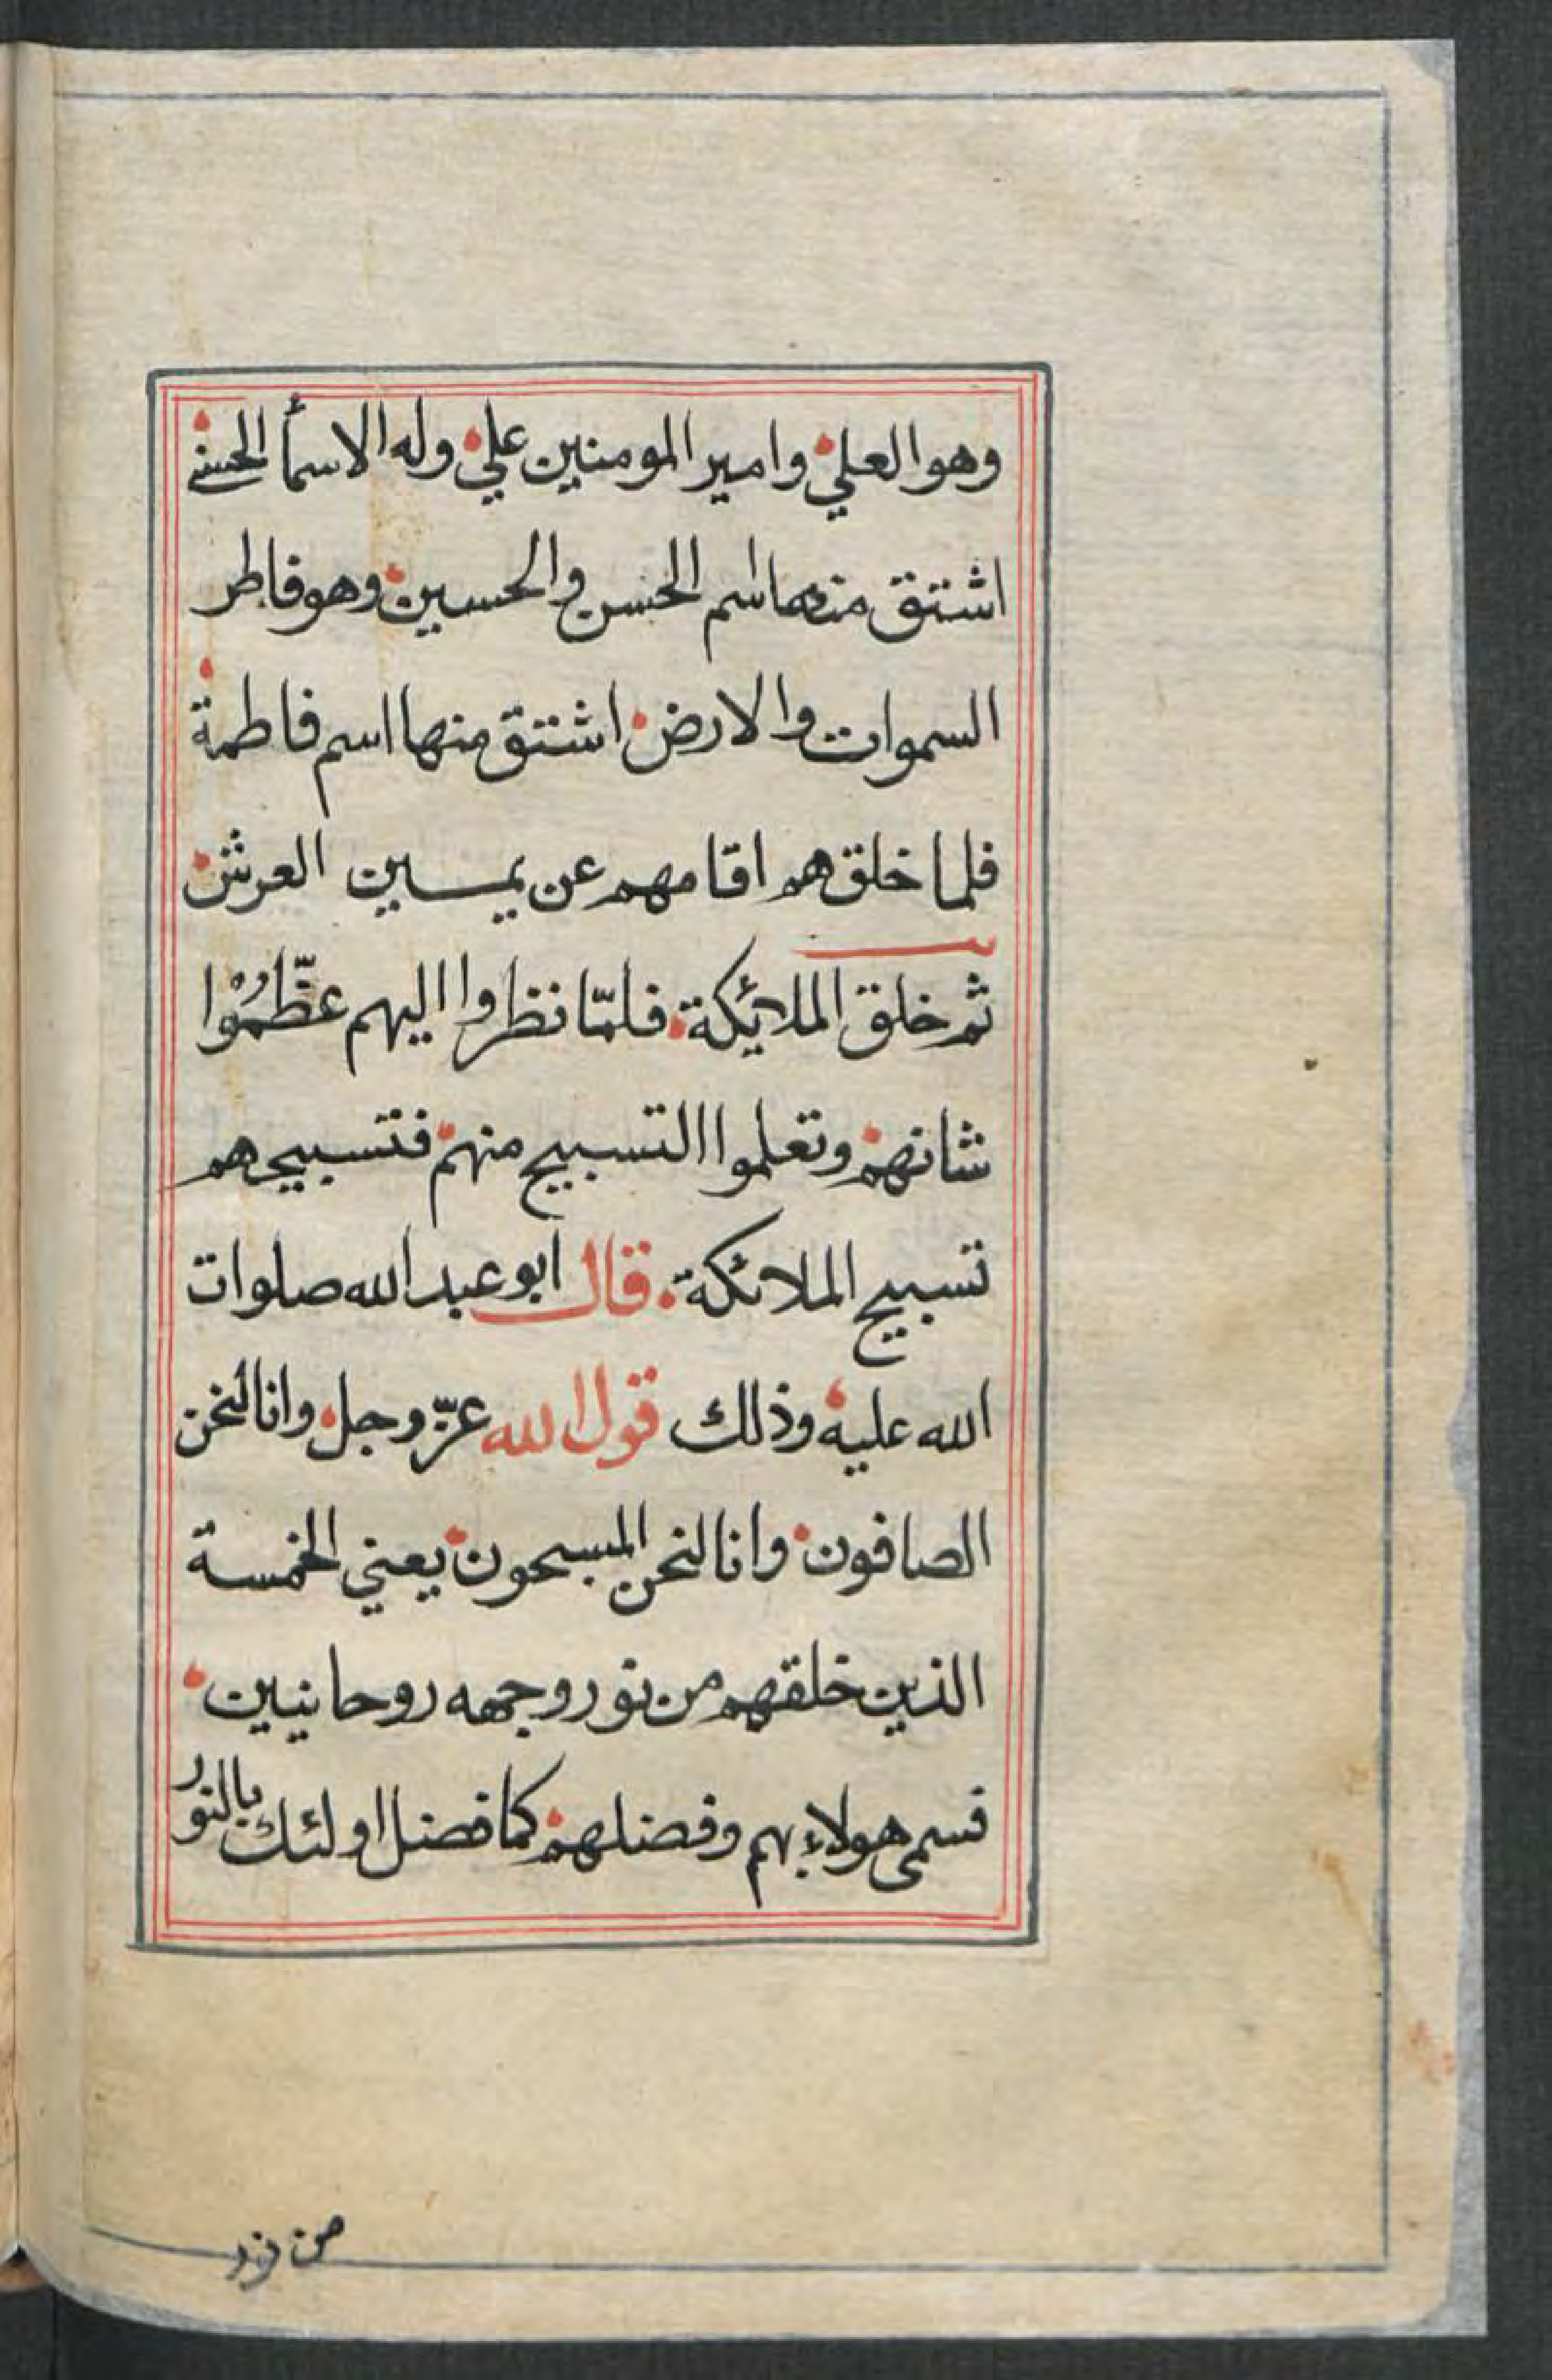 وهو العلي وامير المومنين علي وله الاسمأ الحسنى
اشتق منهما اسم الحسن والحسين وهو فاطر
السموات والارض اشتق منها اسم فاطمة
فلما خلقهم اقامهم عن يمين العرش
ثم خلق الملائكة فلمّا نظروا اليهم عظّمُوْا
شانهم وتعلموا التسبيح منهم فتسبيحهم
تسبيح الملائكة قال ابو عبد الله صلوات
الله عليه وذلك قول الله عزّ وجل وانا لنحن
الصافون وانا لنحن المسبحون يعني الخمسة
الذين خلقهم من نور وجهه روحانيين
فسمى هولاء بهم وفضلهم كما فضل اولئك بالنور
من نور